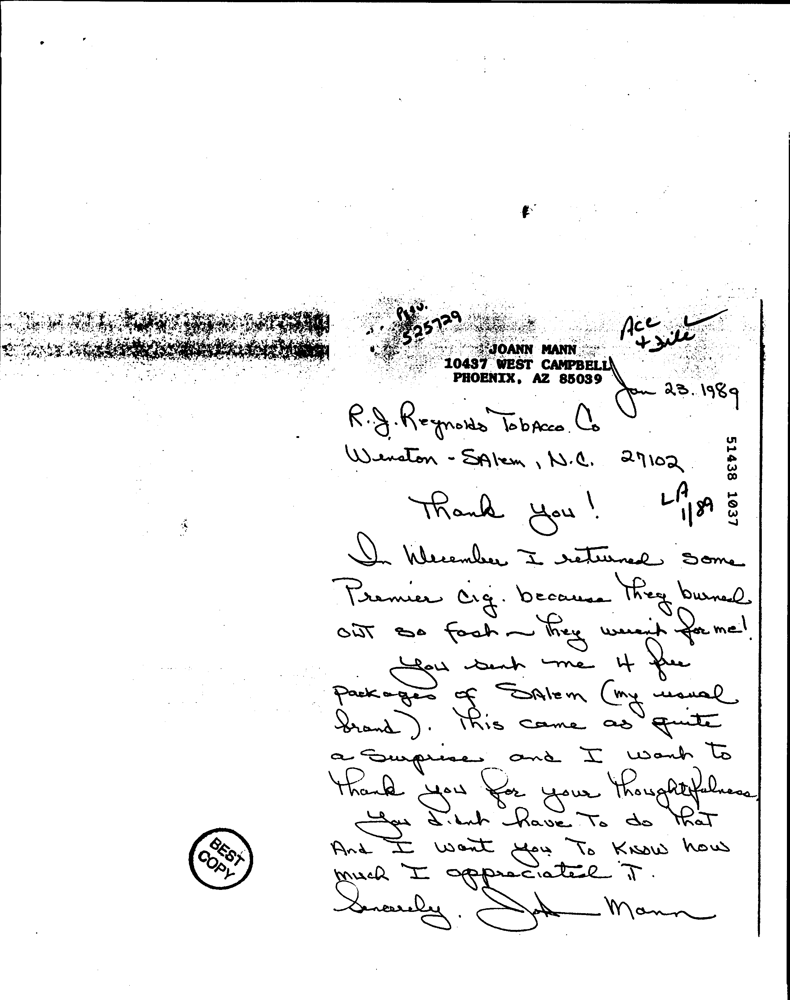 Prev.
525729
Acc
+ File
JOANN MANN
10437 WEST CAMPBELL
PHOENIX, AZ 85039
Jan 23. 1989
R.J. Reynolds Tobacco. Co
Winston - Salem, N.C. 27102
51438 1037
LA
1/89
Thank you!
In December I returned some
Premier cig. because they burned
out so fast ~ they weren't for me!
You sent me 4 free
packages of Salem (my usual
brand). This came as quite
a surprise and I want to
thank you for your thoughtfulness.
You didnt have to do that
And I want you to know how
much I appreciated it.
Sincerely, JoAnn Mann
BEST
COPY